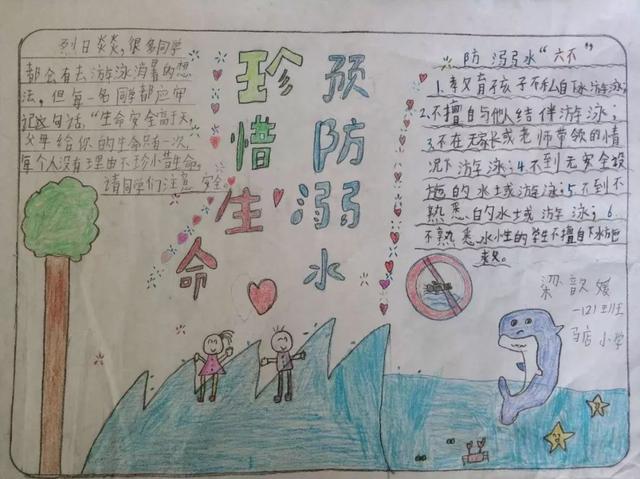 烈日炎炎,很多同学
都会有去游泳消暑的想
法,但每一名同学都应牢
记这句话,“生命安全高于天,
父母给你的生命只有一次,
每个人没有理由不珍惜生命,
请同学们注意安全。
珍惜生命
预防溺水
防溺水“六不”
1.教育孩子不私自下水游泳;
2.不擅自与他人结伴游泳;
3.不在无家长或老师带领的情
况下游泳;4.不到无安全设
施的水域游泳;5.不到不
熟悉的水域游泳;6.
不熟悉水性的学生不擅自下水施
救。
梁歆媛
一121班
马店小学